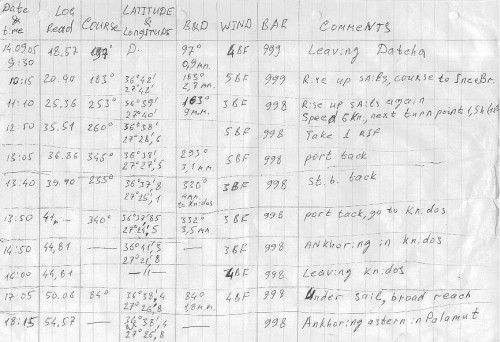 Date & time LOG Read COURSE LATITUDE & Longitude B&D WIND BAR COMMENTS
14.09.05 9:30 18.57 197° D. 97° 0,9 n.m. 4BF 999 Leaving Datcha
10:15 20.90 183° 36°42' 27°42' 183° 2,7 n.m. 5BF 999 Rise up sails, course to
11:10 25,36 253° 36°39' 27°40' 163° 9 n.m. 5BF 998 Rise up sails again
Speed 6kn, next turn point
12:50 35.51 260° 36°38' 27°28,6 5BF 998 Take 1 RIF
13:05 36.86 345° 36°38' 27°27,5 293° 3,1 n.m. 5BF 998 port tack
13:40 39.90 235° 36°37',8 27°25',1 330° 4n.m. to Knidos 3BF 998 st.b. tack
13:50 41,- 340° 36°37,85 27°24,5 332° 3,5 n.m. 4BF 998 port tack, go to Knidos
14:50 44,81 — 36°41',3 27°21',8 — 3BF 998 Ankhoring in Knidos
16:00 44,81 — —11— — 4BF 998 Leaving Knidos
17:05 50.06 84° 36°38',4 27°26',8 84° 1,8 n.m. 4BF 998 Under sail, broad reach
18:15 54,57 — 36°38',4 — 998 Ankhoring astern in Palamut